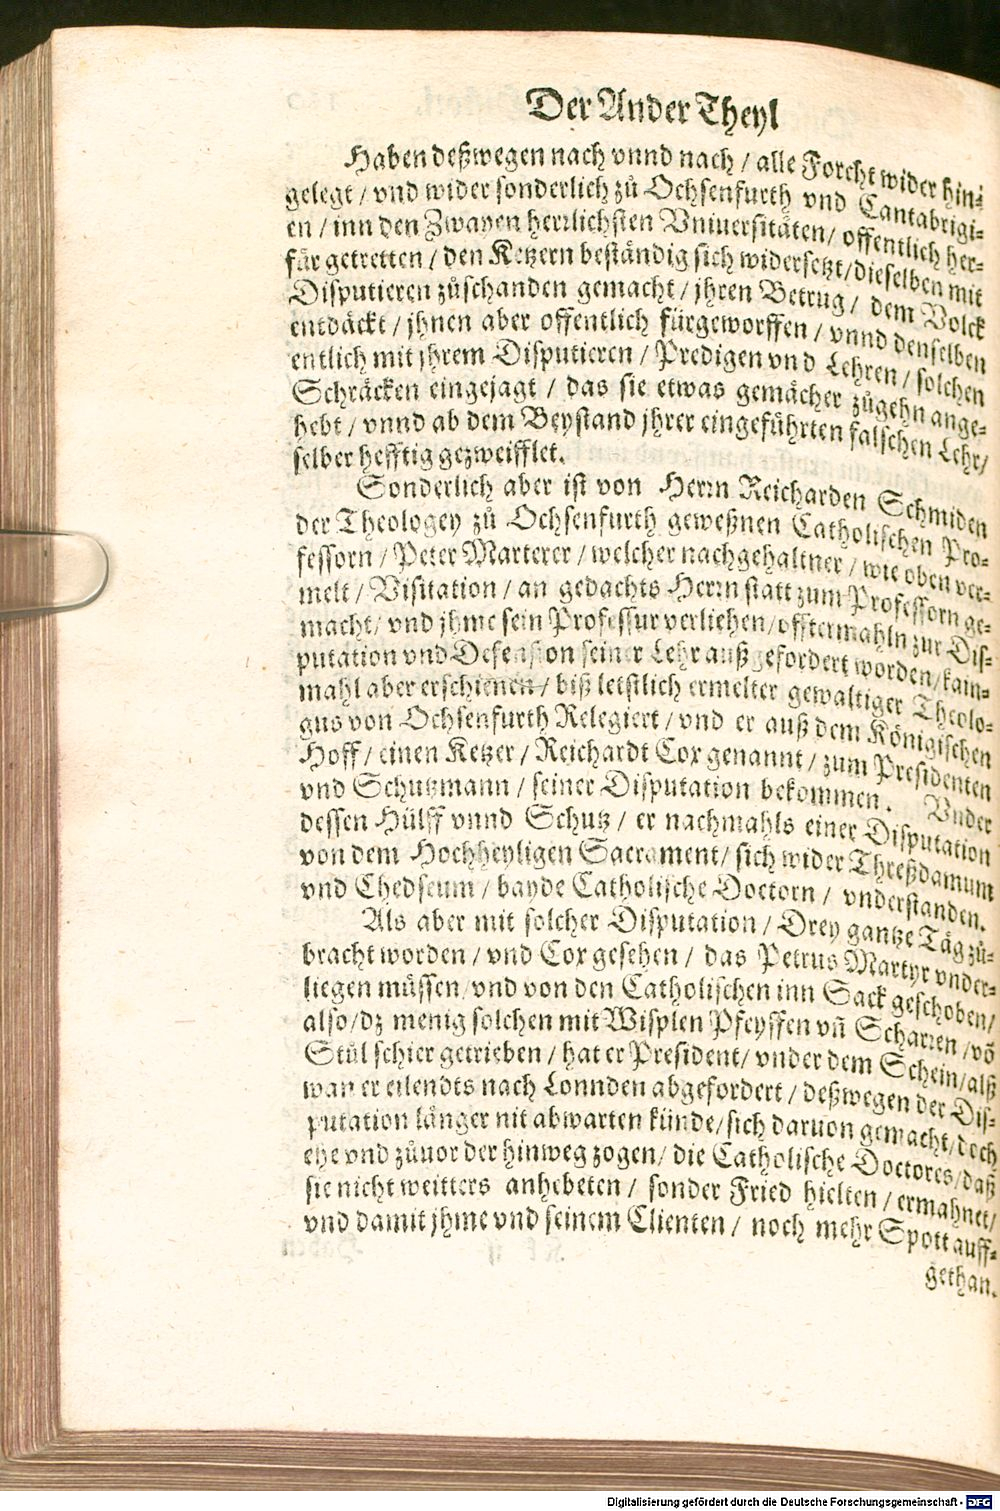 Der Ander Theyl
Haben deßwegen nach vnnd nach / alle Forcht wider hin-
gelegt / vnd wider sonderlich zů Ochsenfurth vnd Cantabrigi-
en / inn den Zwayen herrlichsten Vniuersitäten / offentlich her-
für getretten / den Ketzern beständig sich widersetzt / dieselben mit
Disputieren zůschanden gemacht / jhren Betrug / dem Volck
entdäckt / jhnen aber offentlich fürgeworffen / vnnd denselben
entlich mit jhrem Disputieren / Predigen vnd Lehren / solchen
Schräcken eingejagt / das sie etwas gemächer zůgehn ange-
hebt / vnnd ab dem Beystand jhrer eingeführten falschen Lehr /
selber hefftig gezweifflet.
Sonderlich aber ist von Herrn Reicharden Schmiden
der Theologey zů Ochsenfurth geweßnen Catholischen Pro-
fessorn / Peter Marterer / welcher nachgehaltner / wie oben ver-
melt / Visitation / an gedachts Herrn statt zum Professorn ge-
macht / vnd jhme sein Professur verliehen / offtermahln zur Dis-
putation vnd Defension seiner Lehr außgefordert worden / kain-
mahl aber erschienen / biß letstlich ermelter gewaltiger Theolo-
gus von Ochsenfurth Relegiert / vnd er auß dem Königischen
Hoff / einen Ketzer / Reichardt Cox genannt / zum Presidenten
vnd Schutzmann / seiner Disputation bekommen. Vnder
dessen Hülff vnnd Schutz / er nachmahls einer Disputation
von dem Hochheyligen Sacrament / sich wider Threßdamum
vnd Chedseum / bayde Catholische Doctorn / vnderstanden.
Als aber mit solcher Disputation / Drey gantze Täg zů-
bracht worden / vnd Cox gesehen / das Petrus Martyr vnder-
liegen müssen / vnd von den Catholischen inn Sack geschoben /
also / dz menig solchen mit Wisplen Pfeyffen vñ Scharren / võ
Stůl schier getrieben / hat er President / vnder dem Schein / alß
wan er eilendts nach Lonnden abgefordert / deßwegen der Dis-
putation länger nit abwarten künde / sich daruon gemacht / doch
ehe vnd zůuor der hinweg zogen / die Catholische Doctores / daß
sie nicht weitters anhebeten / sonder Fried hielten / ermahnet /
vnd damit jhme vnd seinem Clienten / noch mehr Spott auff-
gethan.
Digitalisierung gefördert durch die Deutsche Forschungsgemeinschaft - DFG